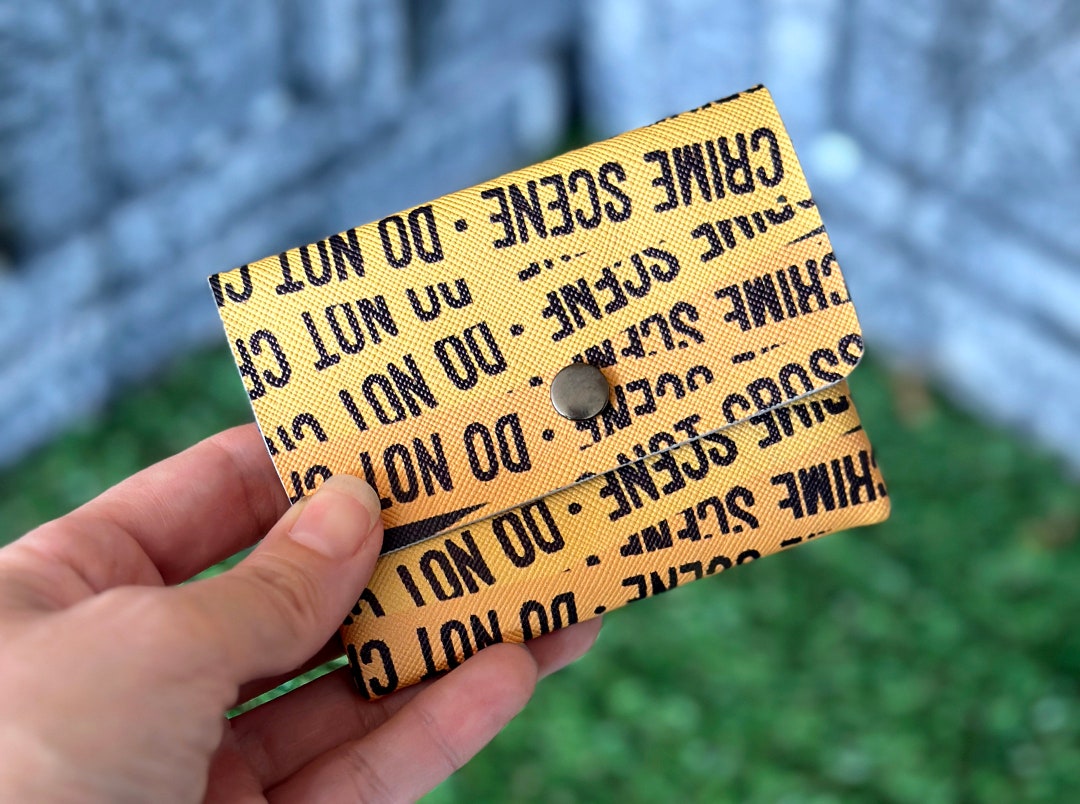 SCENE · DO NOT CR
CRIME SCENE · DO NOT
SCENE · DO NOT
CRIME SCENE · DO NOT
CRIME SCENE · DO NOT CR
CRIME SCENE · DO NOT